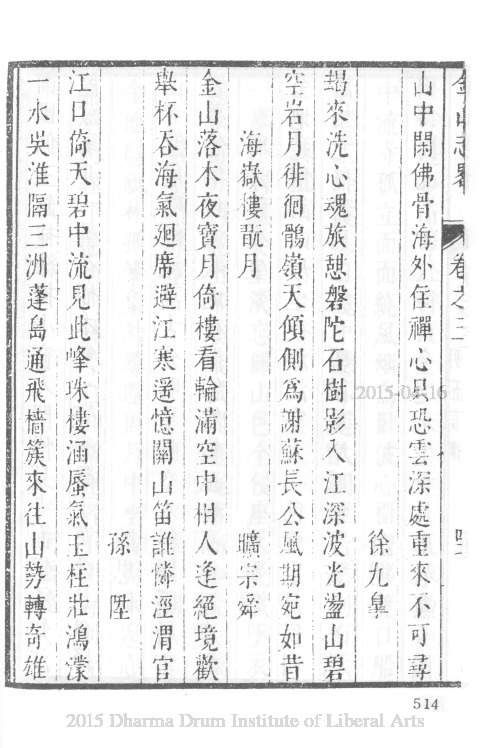 金山志畧 卷之三
山中閑佛骨海外住禪心只恐雲深處重來不可尋
徐九臯
朅來洗心魂旅憩磐陀石樹影入江深波光盪山碧
空岩月徘徊鶻嶺天傾側爲謝蘇長公風期宛如昔
海嶽樓翫月
曠宗舜
金山落木夜寶月倚樓看輪滿空中相人逢絕境歡
舉杯吞海氣廻席避江寒遥憶關山笛誰憐涇渭官
孫陞
江口倚天碧中流見此峰珠樓涵蜃氣玉柱壯鴻濛
一水吳淮隔三洲蓬島通飛檣簇來往山勢轉奇雄
2015-04-16
514
2015 Dharma Drum Institute of Liberal Arts